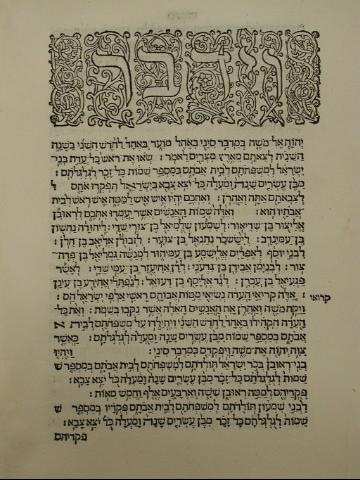 וידבר
יהוה אל משה במדבר סיני באהל מועד באחד לחדש השני בשנה
השנית לצאתם מארץ מצרים לאמר׃ שאו את ראש כל עדת בני
ישראל למשפחתם לבית אבתם במספר שמות כל זכר לגלגלתם׃
מבן עשרים שנה ומעלה כל יצא צבא בישראל תפקדו אתם ל
לצבאתם אתה ואהרן׃ ואתכם יהיו איש איש למטה איש ראש לבית
אבתיו הוא׃ ואלה שמות האנשים אשר יעמדו אתכם לראובן
אליצור בן שדיאור׃ לשמעון שלמיאל בן צורי שדי׃ ליהודה נחשון
בן עמינדב׃ ליששכר נתנאל בן צוער׃ לזבולן אליאב בן חלן׃
לבני יוסף לאפרים אלישמע בן עמיהוד למנשה גמליאל בן פדה
צור׃ לבנימן אבידן בן גדעני׃ לדן אחיעזר בן עמי שדי׃ לאשר
פגעיאל בן עכרן׃ לגד אליסף בן דעואל׃ לנפתלי אחירע בן עינן
׃ אלה קריאי העדה נשיאי מטות אבותם ראשי אלפי ישראל הם׃
קרואי
ויקח משה ואהרן את האנשים האלה אשר נקבו בשמת׃ ואת כל
העדה הקהילו באחד לחדש השני ויתילדו על משפחתם לבית א
אבתם במספר שמות מבן עשרים שנה ומעלה לגלגלתם׃ כאשר
צוה יהוה את משה ויפקדם במדבר סיני׃ ויהיו
בני ראובן בכר ישראל תולדתם למשפחתם לבית אבתם במספר ש
שמות לגלגלתם כל זכר מבן עשרים שנה ומעלה כל יצא צבא׃
פקדיהם למטה ראובן ששה וארבעים אלף וחמש מאות׃
לבני שמעון תולדתם למשפחתם לבית אבתם פקדיו במספר ש
שמות לגלגלתם כל זכר מבן עשרים שנה ומעלה כל יצא צבא׃
פקדיהם